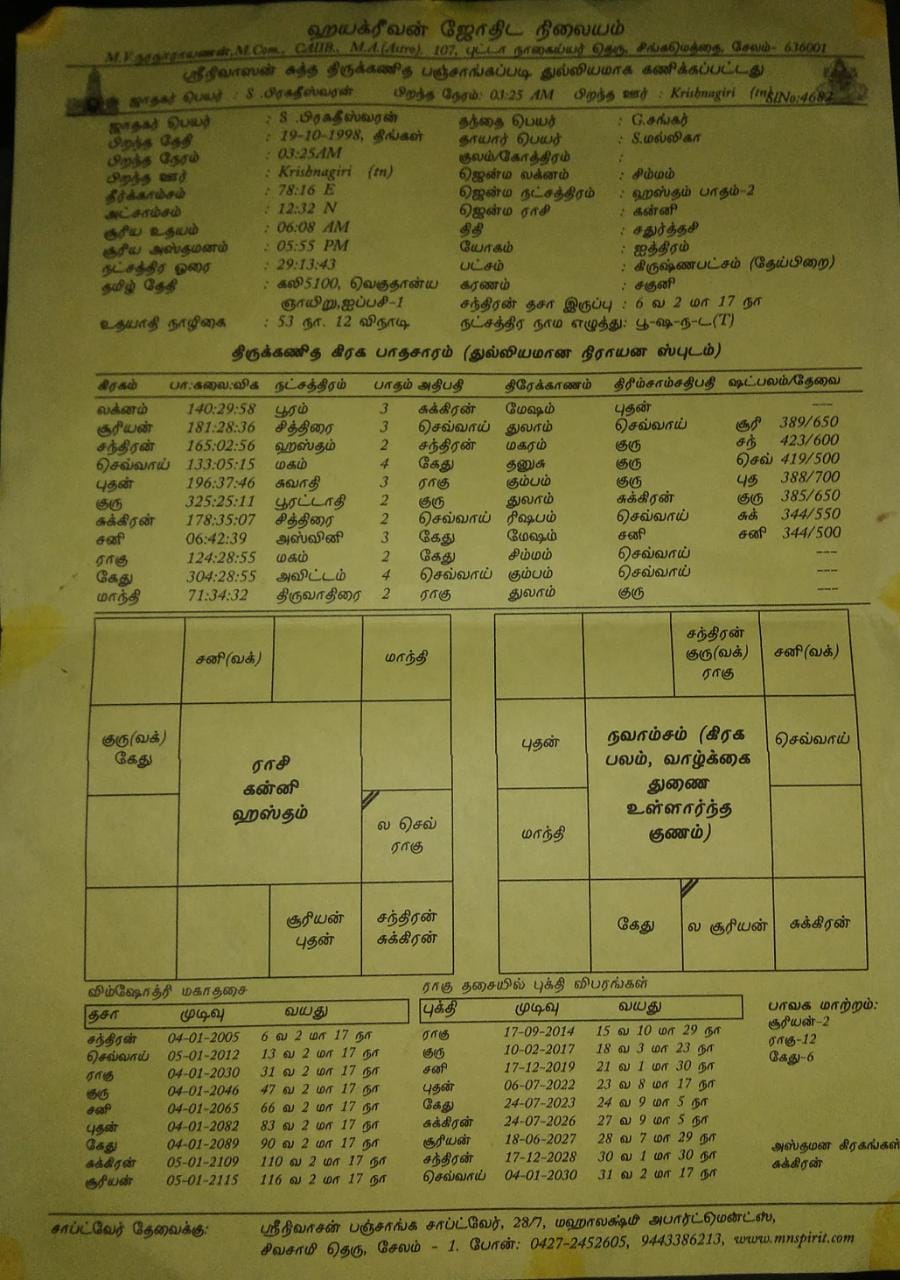 ஹயக்ரீவன் ஜோதிட நிலையம்
M.V.நரநாராயணன்,M.Com., CAIIB., M.A.(Astro), 107, புட்டா நாகைய்யர் தெரு, சிங்கமெத்தை, சேலம்- 636001
ஸ்ரீநிவாஸன் சுத்த திருக்கணித பஞ்சாங்கப்படி துல்லியமாக கணிக்கப்பட்டது
ஜாதகர் பெயர் : S .பிரகதீஸ்வரன் பிறந்த நேரம்: 03:25 AM பிறந்த ஊர் : Krishnagiri (tn) SlNo:4682
ஜாதகர் பெயர் : S .பிரகதீஸ்வரன் தந்தை பெயர் : G.சங்கர்
பிறந்த தேதி : 19-10-1998, திங்கள் தாயார் பெயர் : S.மல்லிகா
பிறந்த நேரம் : 03:25AM குலம்/கோத்திரம் :
பிறந்த ஊர் : Krisbnagiri (tn) ஜென்ம லக்னம் : சிம்மம்
தீர்க்காம்சம் : 78:16 E ஜென்ம நட்சத்திரம் : ஹஸ்தம் பாதம்-2
அட்சாம்சம் : 12:32 N ஜென்ம ராசி : கன்னி
சூரிய உதயம் : 06:08 AM திதி : சதுர்த்தசி
சூரிய அஸ்தமனம் : 05:55 PM யோகம் : ஐத்திரம்
நட்சத்திர ஓரை : 29:13:43 பட்சம் : கிருஷ்ணபட்சம் (தேய்பிறை)
தமிழ் தேதி : கலி5100, வெகுதான்ய கரணம் : சகுனி
ஞாயிறு,ஐப்பசி-1 சந்திரன் தசா இருப்பு : 6 வ 2 மா 17 நா
உதயாதி நாழிகை : 53 நா. 12 விநாடி நட்சத்திர நாம எழுத்து: பூ-ஷ-ந-ட(T)
திருக்கணித கிரக பாதசாரம் (துல்லியமான நிராயன ஸ்புடம்)
கிரகம் பா:கலை:விக நட்சத்திரம் பாதம் அதிபதி திரேக்காணம் திரிம்சாம்சதிபதி ஷட்பலம்/தேவை
லக்னம் 140:29:58 பூரம் 3 சுக்கிரன் மேஷம் புதன் ---
சூரியன் 181:28:36 சித்திரை 3 செவ்வாய் துலாம் செவ்வாய் சூரி 389/650
சந்திரன் 165:02:56 ஹஸ்தம் 2 சந்திரன் மகரம் குரு சந் 423/600
செவ்வாய் 133:05:15 மகம் 4 கேது தனுசு குரு செவ் 419/500
புதன் 196:37:46 சுவாதி 3 ராகு கும்பம் குரு புத 388/700
குரு 325:25:11 பூரட்டாதி 2 குரு துலாம் சுக்கிரன் குரு 385/650
சுக்கிரன் 178:35:07 சித்திரை 2 செவ்வாய் ரிஷபம் செவ்வாய் சுக் 344/550
சனி 06:42:39 அஸ்வினி 3 கேது மேஷம் சனி சனி 344/500
ராகு 124:28:55 மகம் 2 கேது சிம்மம் செவ்வாய் ---
கேது 304:28:55 அவிட்டம் 4 செவ்வாய் கும்பம் செவ்வாய் ---
மாந்தி 71:34:32 திருவாதிரை 2 ராகு துலாம் குரு ---
சனி(வக்) மாந்தி
குரு(வக்)
கேது
ராசி
கன்னி
ஹஸ்தம்
ல செவ்
ராகு
சூரியன்
புதன்
சந்திரன்
சுக்கிரன்
சந்திரன்
குரு(வக்)
ராகு
சனி(வக்)
புதன்
நவாம்சம் (கிரக
பலம், வாழ்க்கை
துணை
உள்ளார்ந்த
குணம்)
செவ்வாய்
மாந்தி
கேது
ல சூரியன்
சுக்கிரன்
விம்ஷோத்ரி மகாதசை
தசா முடிவு வயது
சந்திரன் 04-01-2005 6 வ 2 மா 17 நா
செவ்வாய் 05-01-2012 13 வ 2 மா 17 நா
ராகு 04-01-2030 31 வ 2 மா 17 நா
குரு 04-01-2046 47 வ 2 மா 17 நா
சனி 04-01-2065 66 வ 2 மா 17 நா
புதன் 04-01-2082 83 வ 2 மா 17 நா
கேது 04-01-2089 90 வ 2 மா 17 நா
சுக்கிரன் 05-01-2109 110 வ 2 மா 17 நா
சூரியன் 05-01-2115 116 வ 2 மா 17 நா
ராகு தசையில் புக்தி விபரங்கள்
புக்தி முடிவு வயது
ராகு 17-09-2014 15 வ 10 மா 29 நா
குரு 10-02-2017 18 வ 3 மா 23 நா
சனி 17-12-2019 21 வ 1 மா 30 நா
புதன் 06-07-2022 23 வ 8 மா 17 நா
கேது 24-07-2023 24 வ 9 மா 5 நா
சுக்கிரன் 24-07-2026 27 வ 9 மா 5 நா
சூரியன் 18-06-2027 28 வ 7 மா 29 நா
சந்திரன் 17-12-2028 30 வ 1 மா 30 நா
செவ்வாய் 04-01-2030 31 வ 2 மா 17 நா
பாவக மாற்றம்:
சூரியன்-2
ராகு-12
கேது-6
அஸ்தமன கிரகங்கள்
சுக்கிரன்
சாப்ட்வேர் தேவைக்கு: ஸ்ரீநிவாசன் பஞ்சாங்க சாப்ட்வேர், 28/7, மஹாலக்ஷ்மி அபார்ட்மென்ட்ஸ்,
சிவசாமி தெரு, சேலம் - 1. போன்: 0427-2452605, 9443386213, www.mnspirit.com